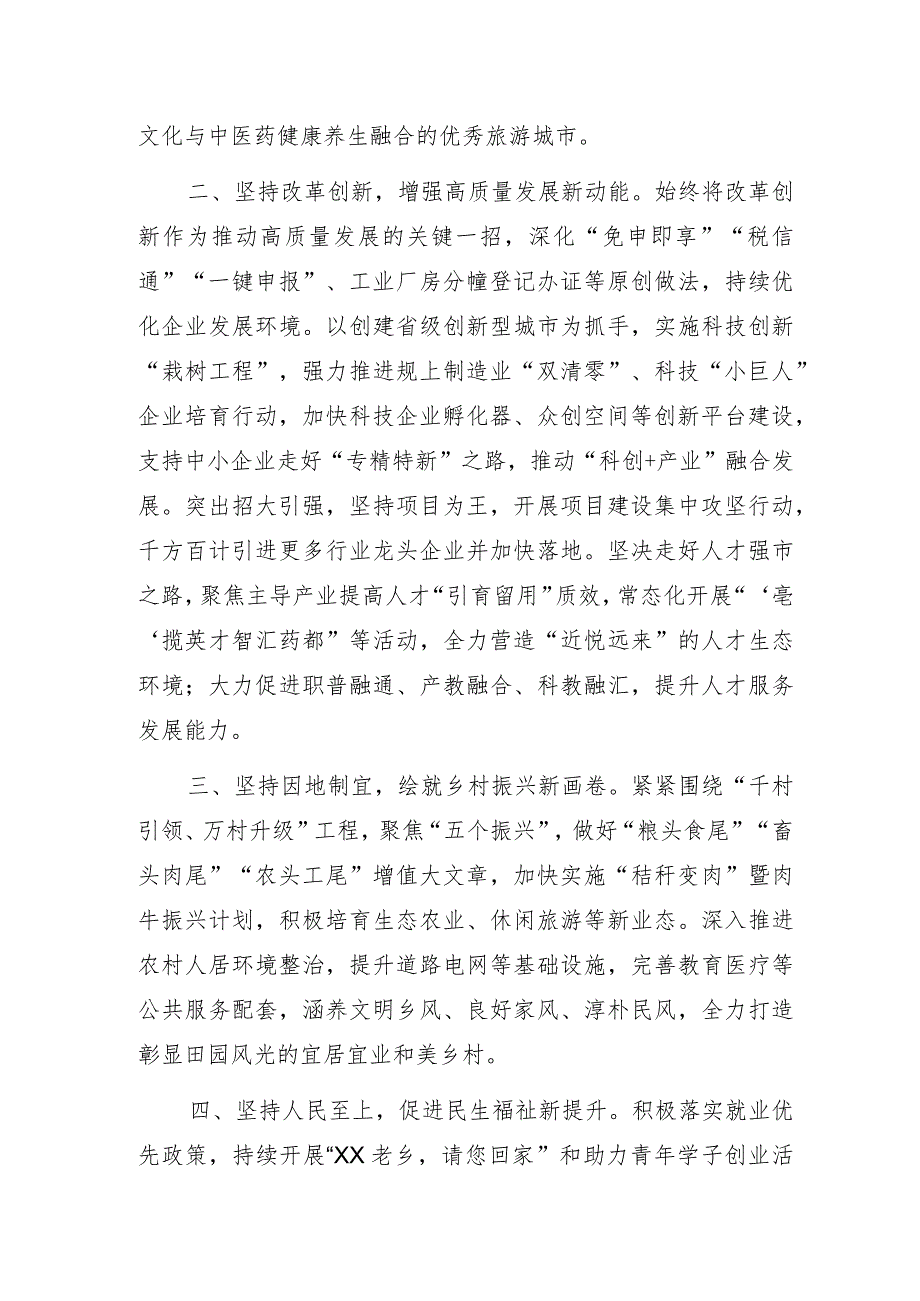 文化与中医药健康养生融合的优秀旅游城市。
二、坚持改革创新，增强高质量发展新动能。始终将改革创
新作为推动高质量发展的关键一招，深化“免申即享”“税信
通”“一键申报”、工业厂房分幢登记办证等原创做法，持续优
化企业发展环境。以创建省级创新型城市为抓手，实施科技创新
“栽树工程”，强力推进规上制造业“双清零”、科技“小巨人”
企业培育行动，加快科技企业孵化器、众创空间等创新平台建设，
支持中小企业走好“专精特新”之路，推动“科创+产业”融合发
展。突出招大引强，坚持项目为王，开展项目建设集中攻坚行动，
千方百计引进更多行业龙头企业并加快落地。坚决走好人才强市
之路，聚焦主导产业提高人才“引育留用”质效，常态化开展“‘亳
‘揽英才智汇药都”等活动，全力营造“近悦远来”的人才生态
环境；大力促进职普融通、产教融合、科教融汇，提升人才服务
发展能力。
三、坚持因地制宜，绘就乡村振兴新画卷。紧紧围绕“千村
引领、万村升级”工程，聚焦“五个振兴”，做好“粮头食尾”“畜
头肉尾”“农头工尾”增值大文章，加快实施“秸秆变肉”暨肉
牛振兴计划，积极培育生态农业、休闲旅游等新业态。深入推进
农村人居环境整治，提升道路电网等基础设施，完善教育医疗等
公共服务配套，涵养文明乡风、良好家风、淳朴民风，全力打造
彰显田园风光的宜居宜业和美乡村。
四、坚持人民至上，促进民生福祉新提升。积极落实就业优
先政策，持续开展“XX 老乡，请您回家”和助力青年学子创业活